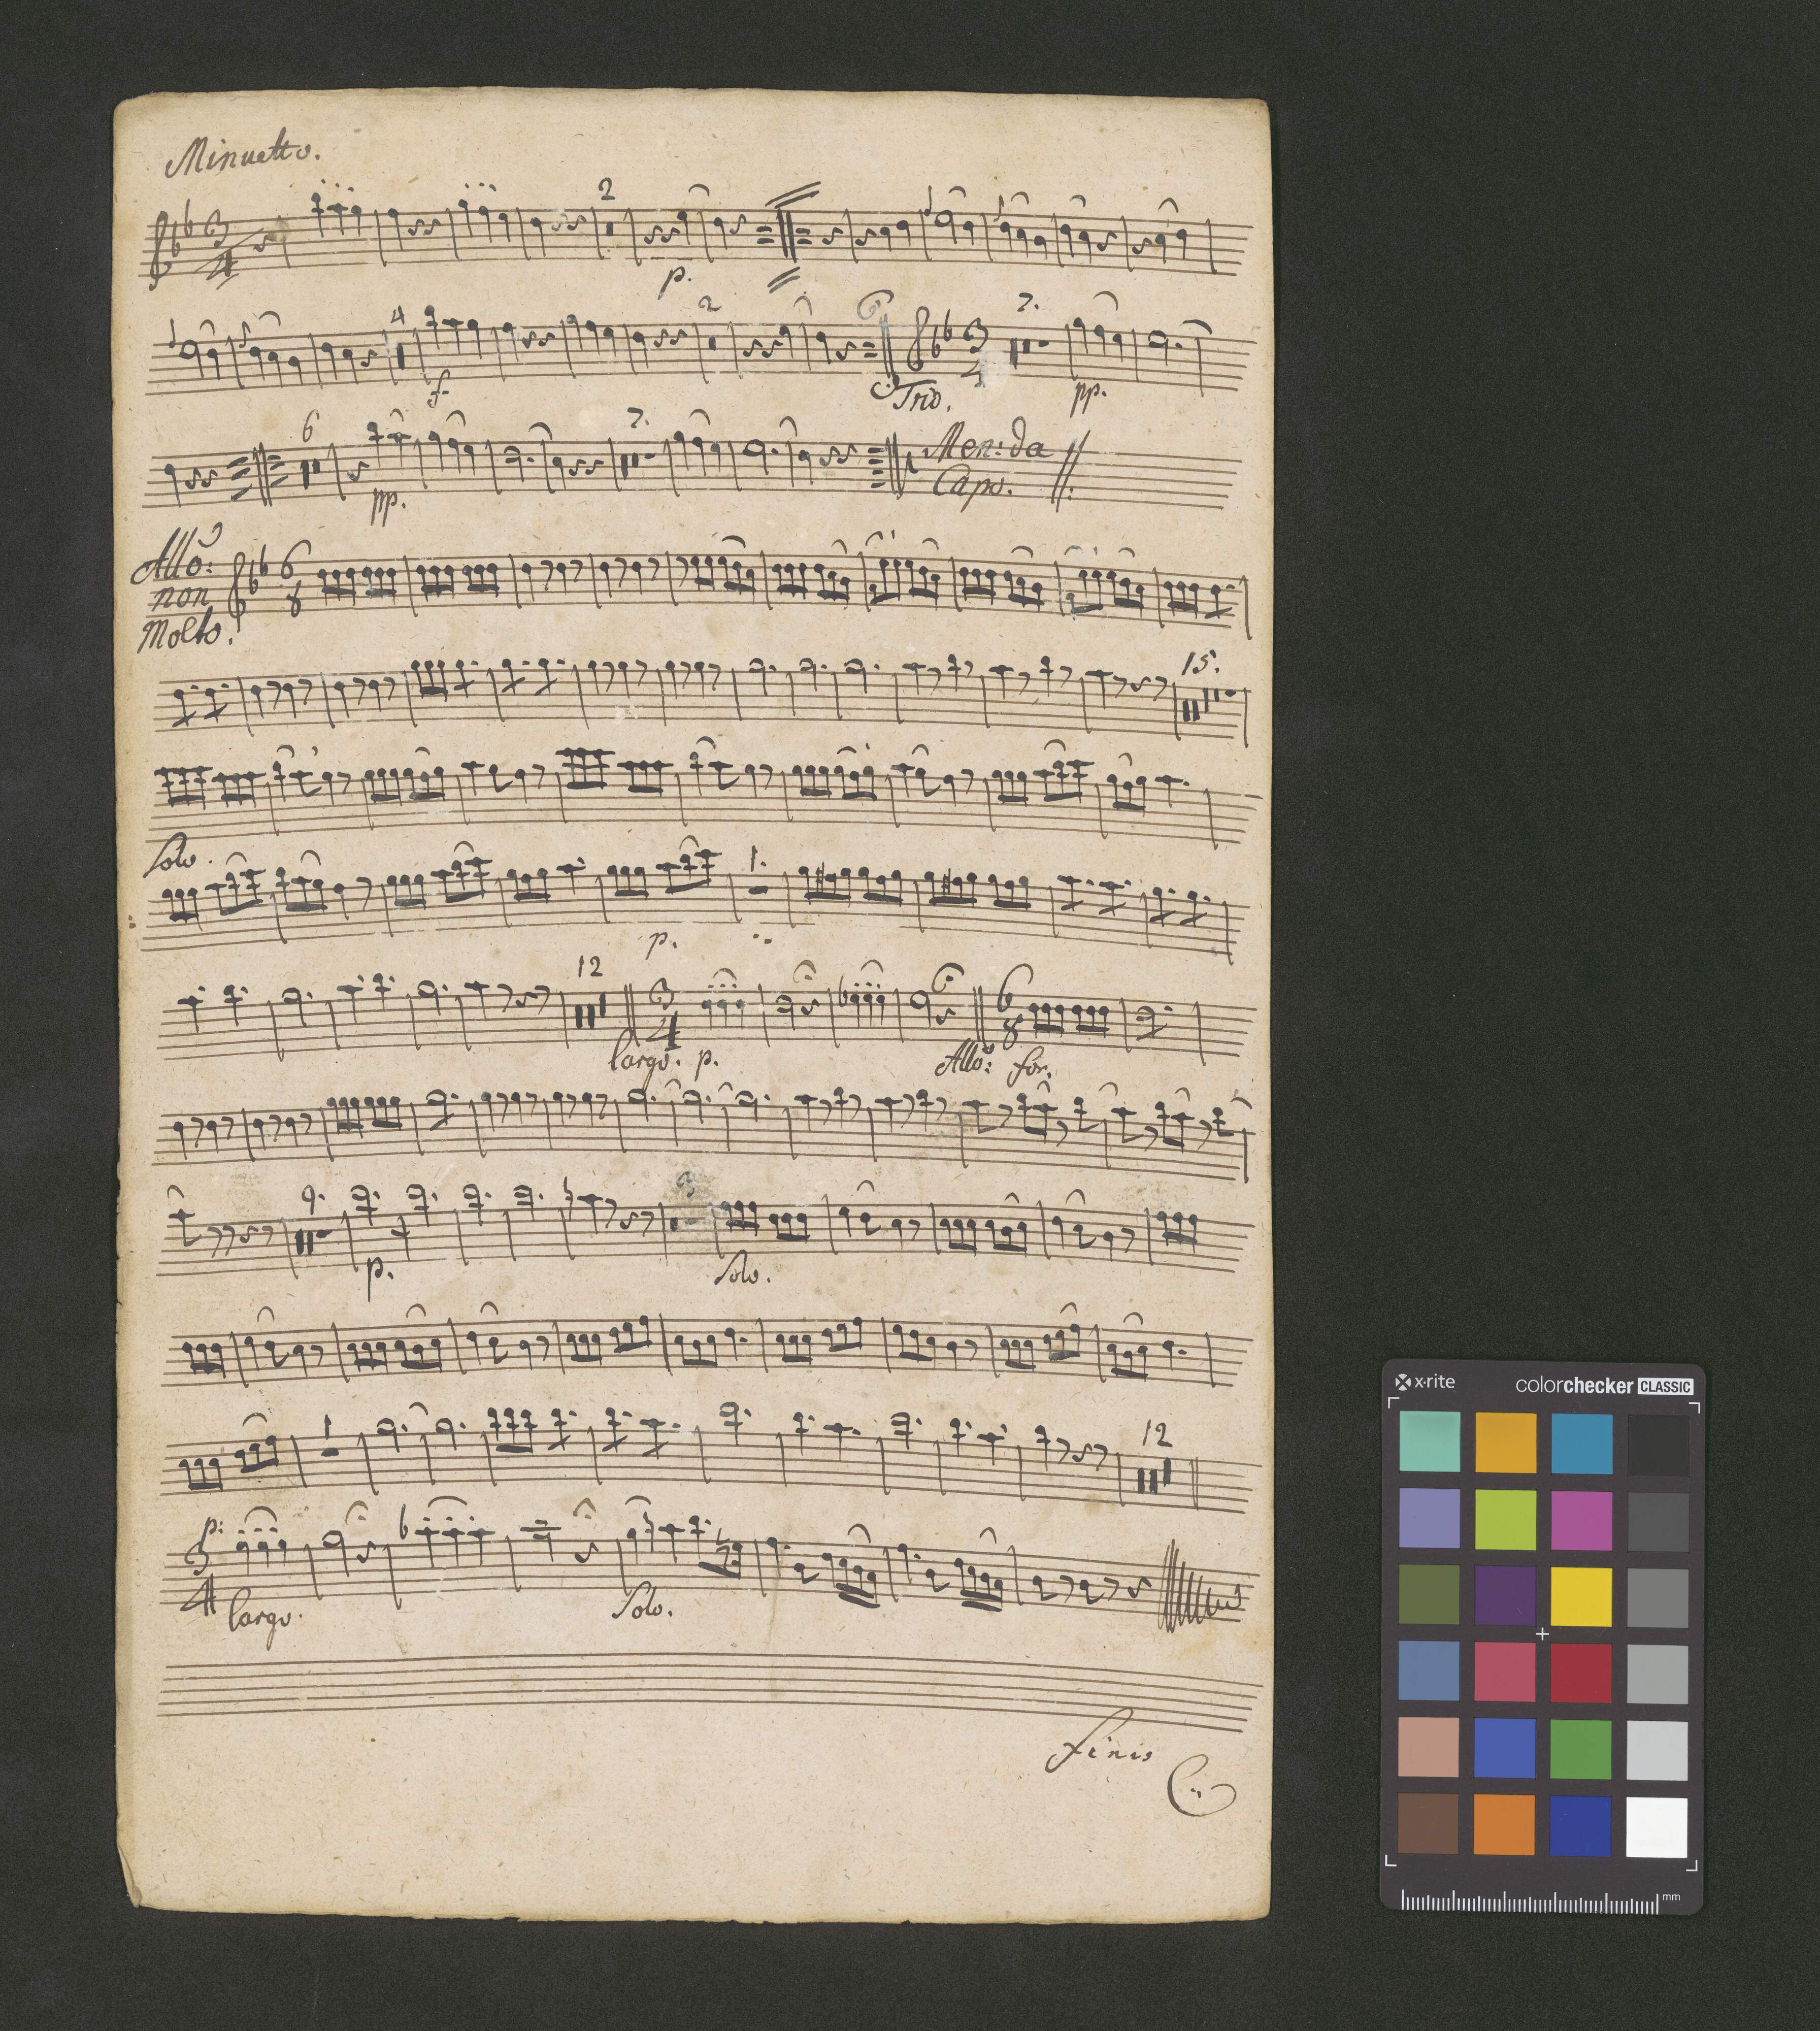 Minuetto.
3 4
2
p.
4 2 7.
f. Trio. 3 4 pp.
6 7.
pp. Men: da
Capo.
Allo: 6 8
non
Molto.
15.
Solo.
1.
p.
12 3 4 6 8
largo. p. Allo: for.
9. 3
p. Solo.
1 12
p:
3 4 largo. Solo.
Finis
x-rite colorchecker CLASSIC
mm